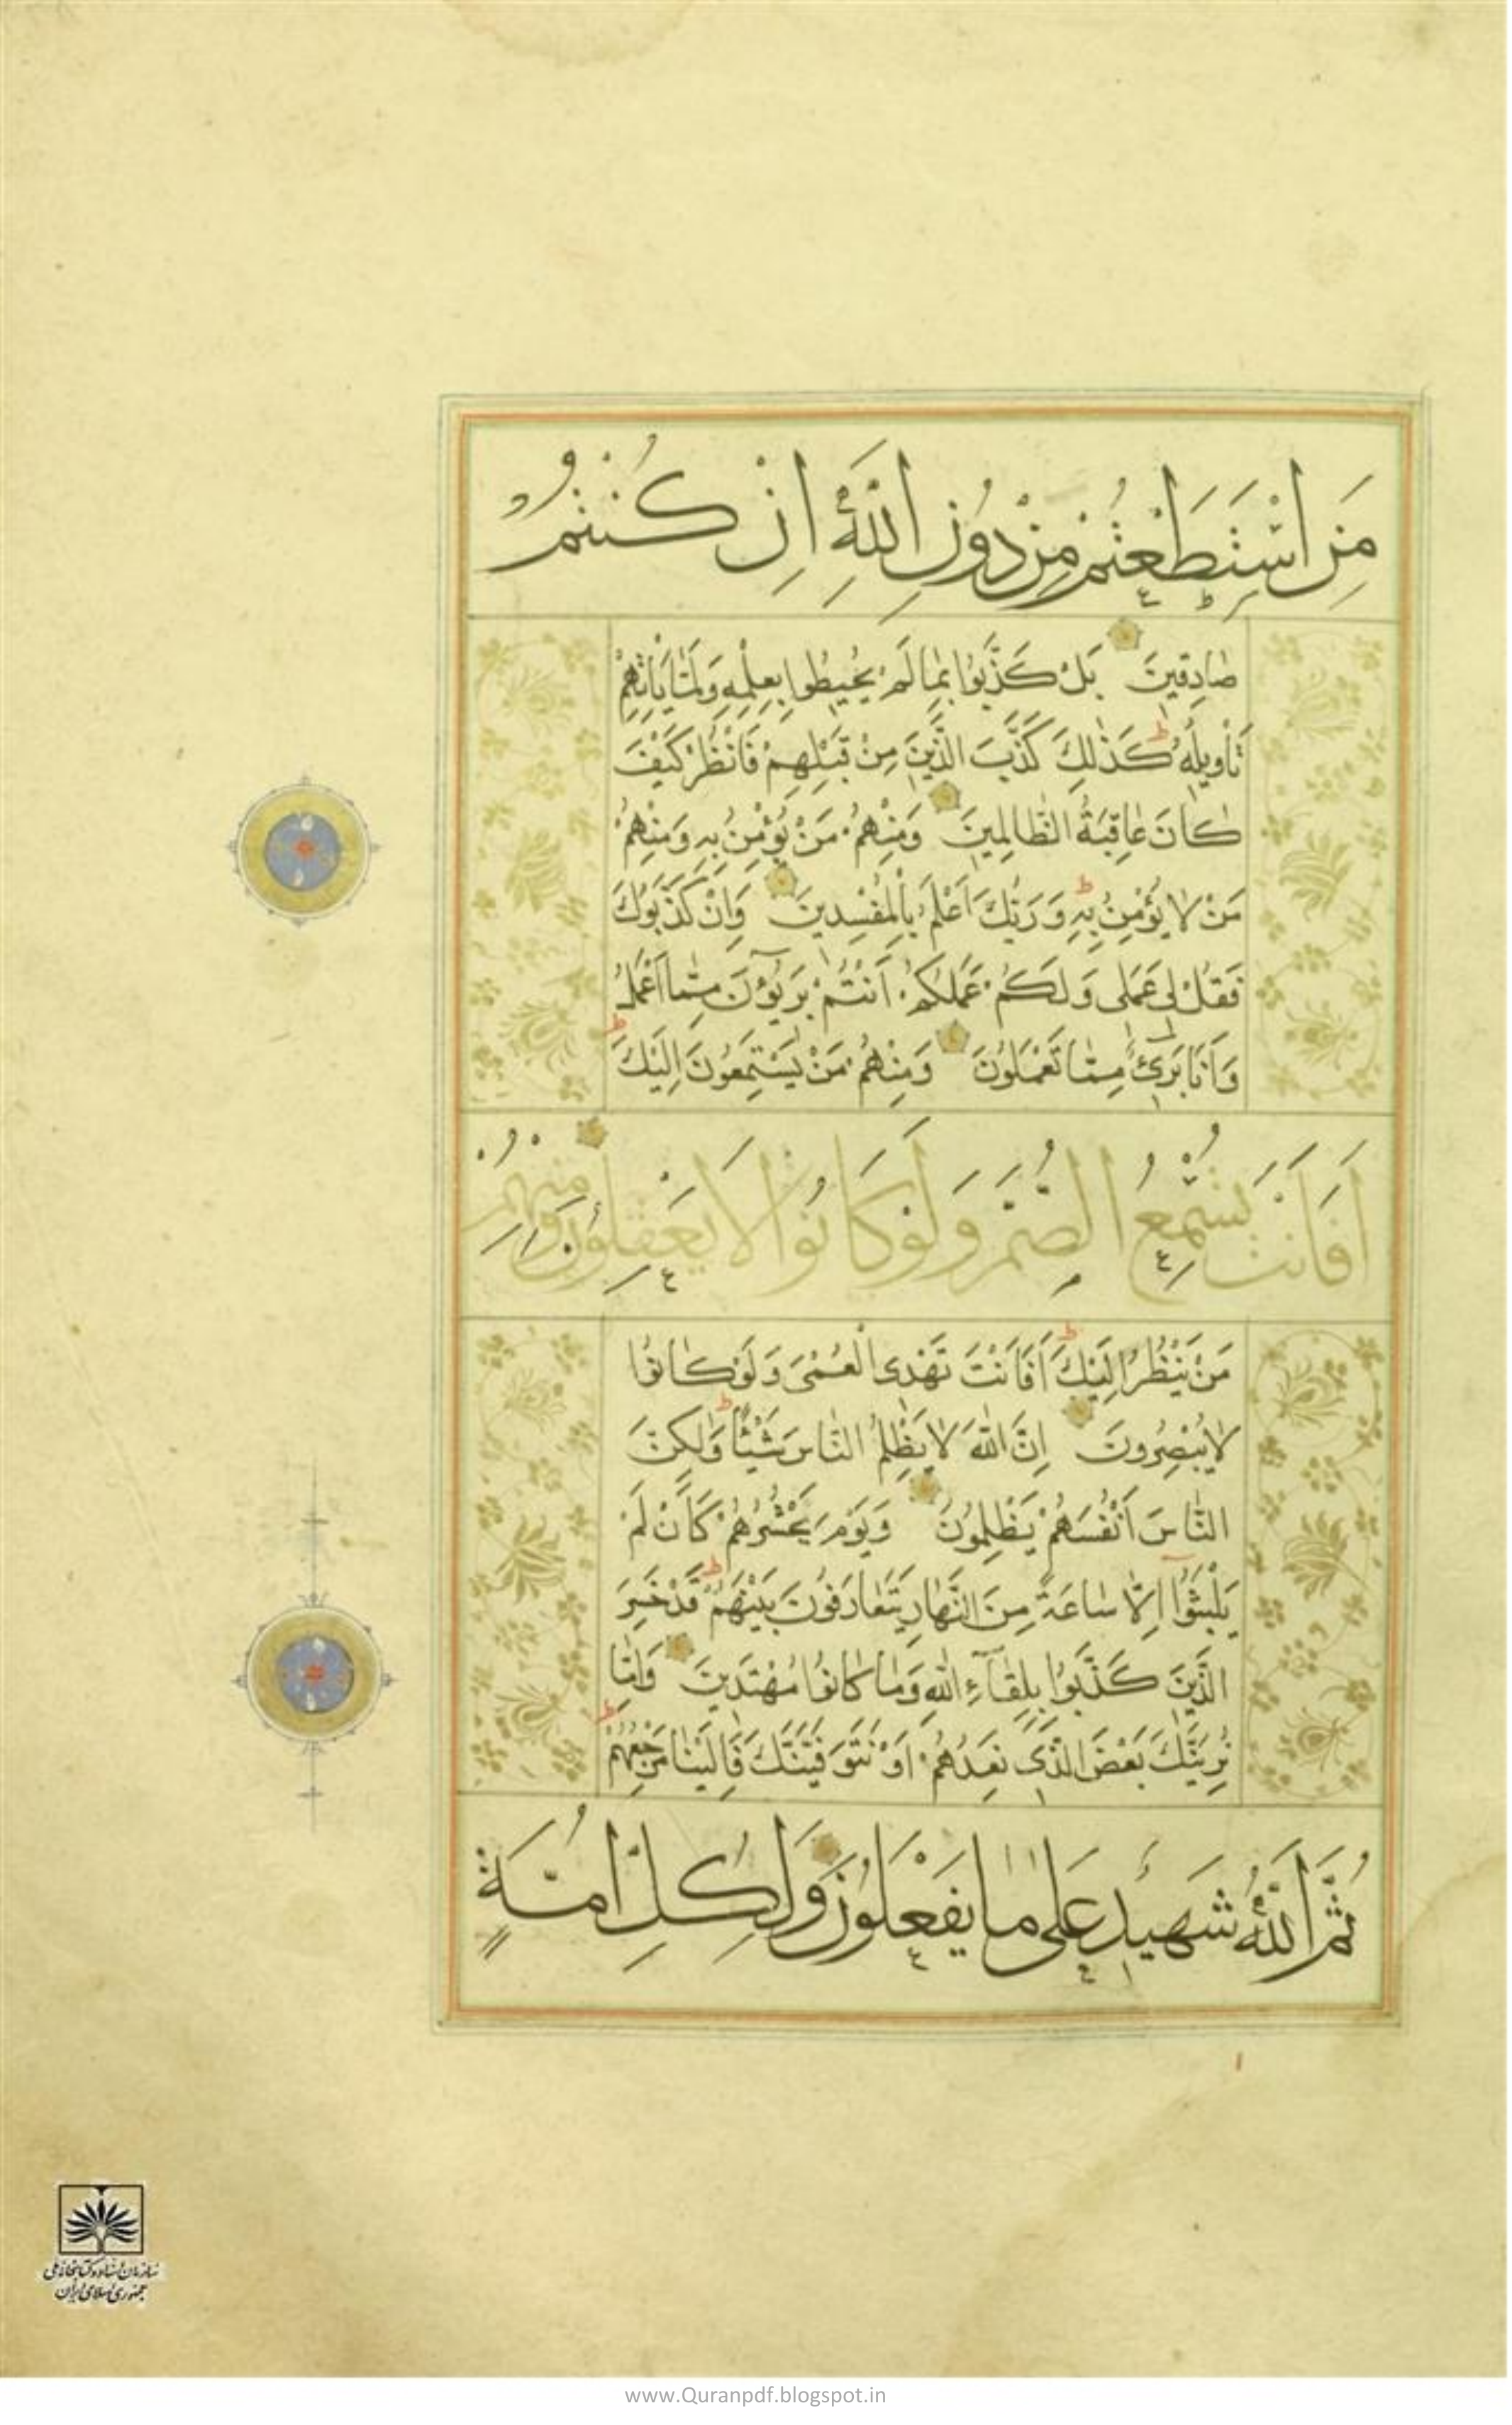 مَنِ اسْتَطَعْتُمْ مِنْ دُونِ اللَّهِ اِنْ كُنْتُمْ
صٰادِقِينَ بَلْ كَذَّبُوا بِمٰا لَمْ يُحِيطُوا بِعِلْمِهِ وَلَمّٰا يَأْتِهِمْ
تَأْوِيلُهُ ط كَذٰلِكَ كَذَّبَ الَّذِينَ مِنْ قَبْلِهِمْ فَانْظُرْ كَيْفَ
كٰانَ عٰاقِبَةُ الظّٰالِمِينَ وَمِنْهُمْ مَنْ يُؤْمِنُ بِهِ وَمِنْهُمْ
مَنْ لٰا يُؤْمِنُ بِهِ ط وَرَبُّكَ اَعْلَمُ بِالْمُفْسِدِينَ وَاِنْ كَذَّبُوكَ
فَقُلْ لِى عَمَلِى وَلَكُمْ عَمَلُكُمْ اَنْتُمْ بَرِيٓؤُنَ مِمّٰا اَعْمَلُ
وَاَنَا بَرِىٓءٌ مِمّٰا تَعْمَلُونَ وَمِنْهُمْ مَنْ يَسْتَمِعُونَ اِلَيْكَ ط
اَفَاَنْتَ تُسْمِعُ الصُّمَّ وَلَوْ كَانُوا لَا يَعْقِلُونَ وَمِنْهُمْ
مَنْ يَنْظُرُ اِلَيْكَ ط اَفَاَنْتَ تَهْدِى الْعُمْىَ وَلَوْ كٰانُوا
لٰا يُبْصِرُونَ اِنَّ اللّٰهَ لٰا يَظْلِمُ النّٰاسَ شَيْئًا ط وَلٰكِنَّ
النّٰاسَ اَنْفُسَهُمْ يَظْلِمُونَ وَيَوْمَ يَحْشُرُهُمْ كَاَنْ لَمْ
يَلْبَثُوٓا اِلّٰا سٰاعَةً مِنَ النَّهٰارِ يَتَعٰارَفُونَ بَيْنَهُمْ ط قَدْ خَسِرَ
الَّذِينَ كَذَّبُوا بِلِقٰآءِ اللّٰهِ وَمٰا كٰانُوا مُهْتَدِينَ وَاِمّٰا
نُرِيَنَّكَ بَعْضَ الَّذِى نَعِدُهُمْ اَوْ نَتَوَفَّيَنَّكَ فَاِلَيْنٰا مَرْجِعُهُمْ ط
ثُمَّ اللَّهُ شَهِيدٌ عَلىٰ مٰا يَفْعَلُونَ وَلِكُلِّ اُمَّةٍ
سازمان اسناد و کتابخانه ملی
جمهوری اسلامی ایران
www.Quranpdf.blogspot.in